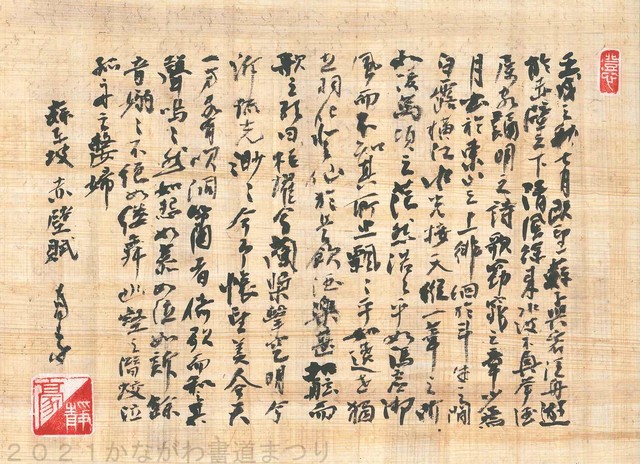 壬戌之秋七月既望蘇子與客泛舟遊
於赤壁之下清風徐来水波不興擧酒
属客誦明之詩歌窈窕之章少焉
月出於東山之上徘徊於斗牛之間
白露横江水光接天縦一葦之所
如凌萬頃之茫然浩々乎如馮虚御
風而不知其所止飄々乎如遺世獨
立羽化登仙於是飲酒樂甚扣舷而
歌之歌曰桂櫂兮蘭槳擊空明兮
泝流光渺々兮予懐望美人兮天
一方客有吹洞簫者倚歌而和其
聲嗚々然如怨如慕如泣如訴餘
音嫋々不絶如縷舞幽壑之潛蛟泣
孤舟之嫠婦
蘇東坡 赤壁賦
2021かながわ書道まつり